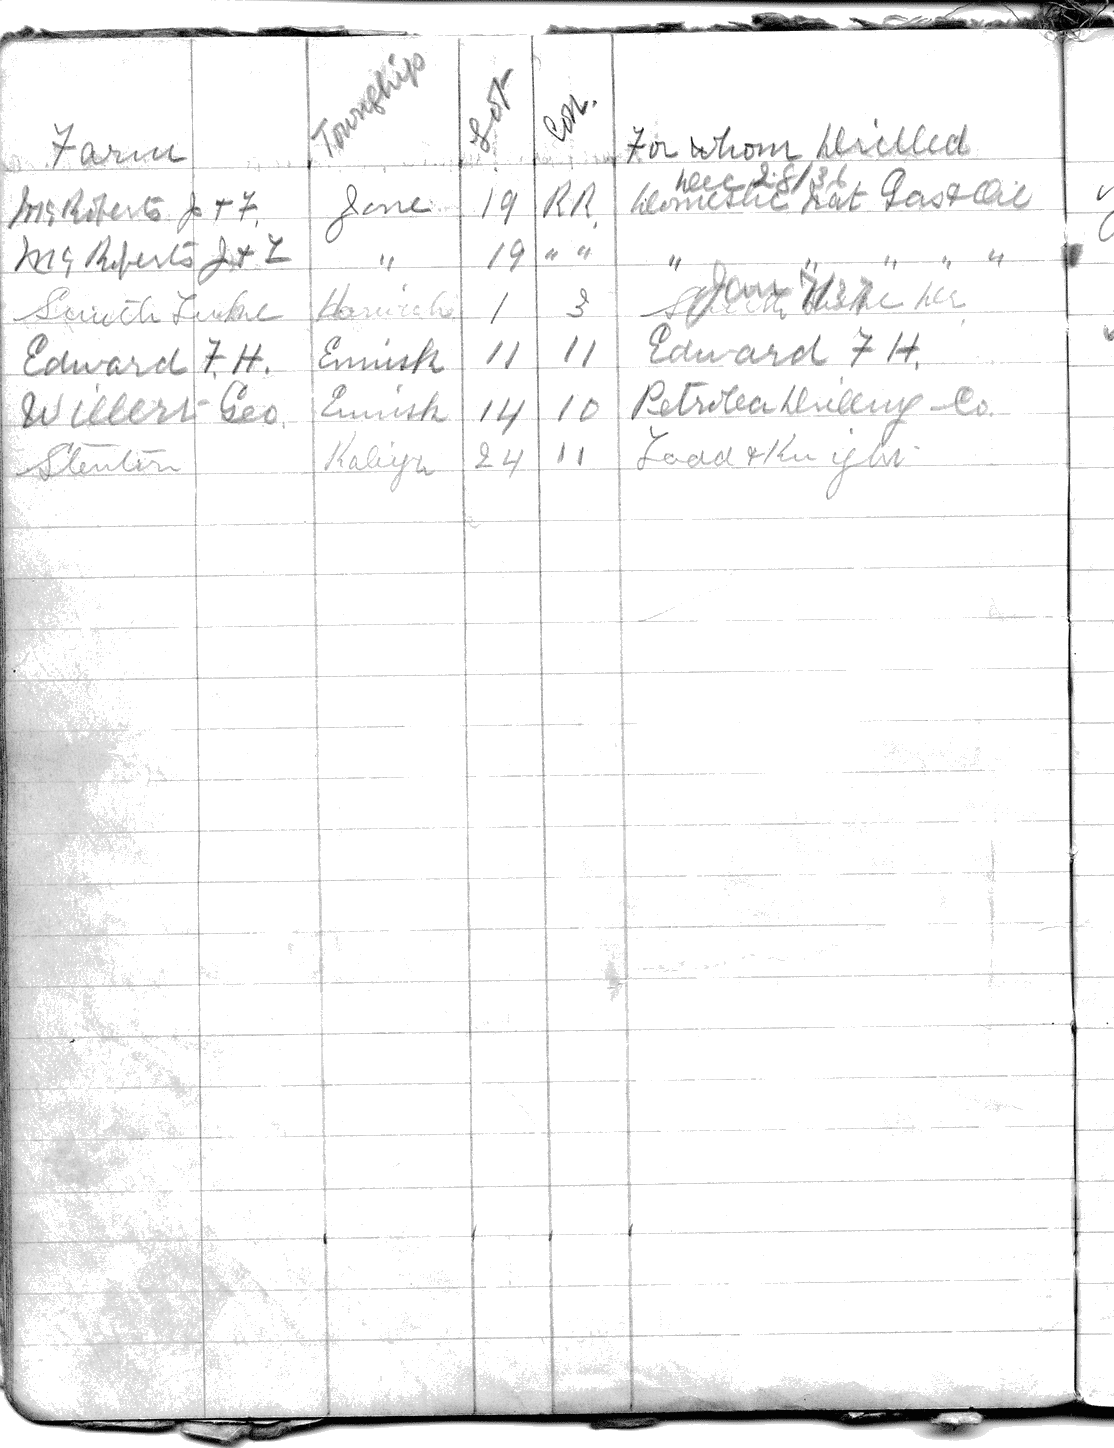 Farm Township Lot Con. For Whom Drilled
Dec 28/36
McRoberts J + F. Zone 19 RR. Domestic Nat Gas & Oil
McRoberts J + F " 19 " " " " " " "
Jan 7/37
Smith Luke Harwich 1 3 Smith Luke
Edward F. H. Ennisk 11 11 Edward F H.
Willert Geo. Ennisk 14 10 Petrolea Drilling Co.
Stenton 24 11 Todd & Knight